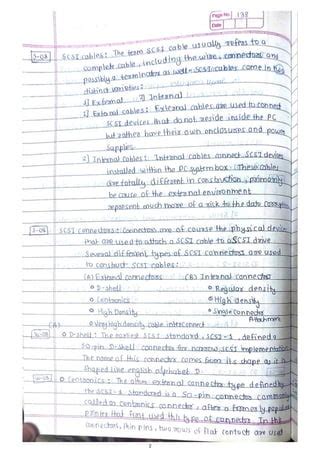 Page No. 138
Date
J-03 SCSI cables: The term SCSI cable usually refers to a
complete cable, including the wire, connectors and
possibly a terminator as well. SCSI cables come in two
distinct varieties:
1) External 2) Internal
1) External cables: External cables are used to connect
SCSI devices that do not reside inside the PC
but rather have their own enclosures and power
supplies
2) Internal cables: Internal cables connect SCSI devices
installed within the PC system box. These cables
are totally different in construction, primarily
because of the external environment
represent much more of a risk to the data corruption
J-03 SCSI connectors: Connectors are of course the physical device
that are used to attach a SCSI cable to a SCSI drive
Several different types of SCSI connectors are used
to construct SCSI cables:
(A) External connectors (B) Internal connectors
D-shell Regular density
Centronics High density
High Density Single connector
Attachment
(A) Very high density cable interconnect
D-shell: The earliest SCSI standard, SCSI-1, defined a
50 pin D-shell connector for narrow SCSI implementation
The name of this connector comes from its shape as it is
shaped like english alphabet D.
Centronics: The other external connector type defined by
the SCSI-1 standard is a 50-pin connector commonly
called as Centronics connector, after a formerly popular
printer that first used this type of connector. In the
connectors, thin pins, two rows of flat contacts are used